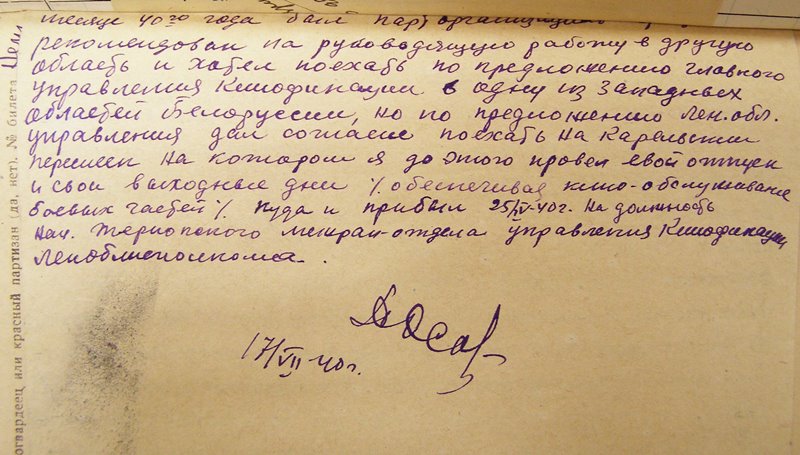 месяце 40го года был парторганизацией
рекомендован на руководящую работу в другую
область и хотел поехать по предложению главного
управления Кинофикации в одну из Западных
областей Белоруссии, но по предложению Лен.обл.
управления дал согласие поехать на Карельский
перешеек на котором я до этого провел свой отпуск
и свои выходные дни % обеспечивая кино-обслуживание
боевых частей % куда и прибыл 25/IV-40г. на должность
нач. Териокского межрай-отдела управления Кинофикации
Леноблисполкома.
17/VII-40г.
огвардеец или красный партизан (да, нет). № билета